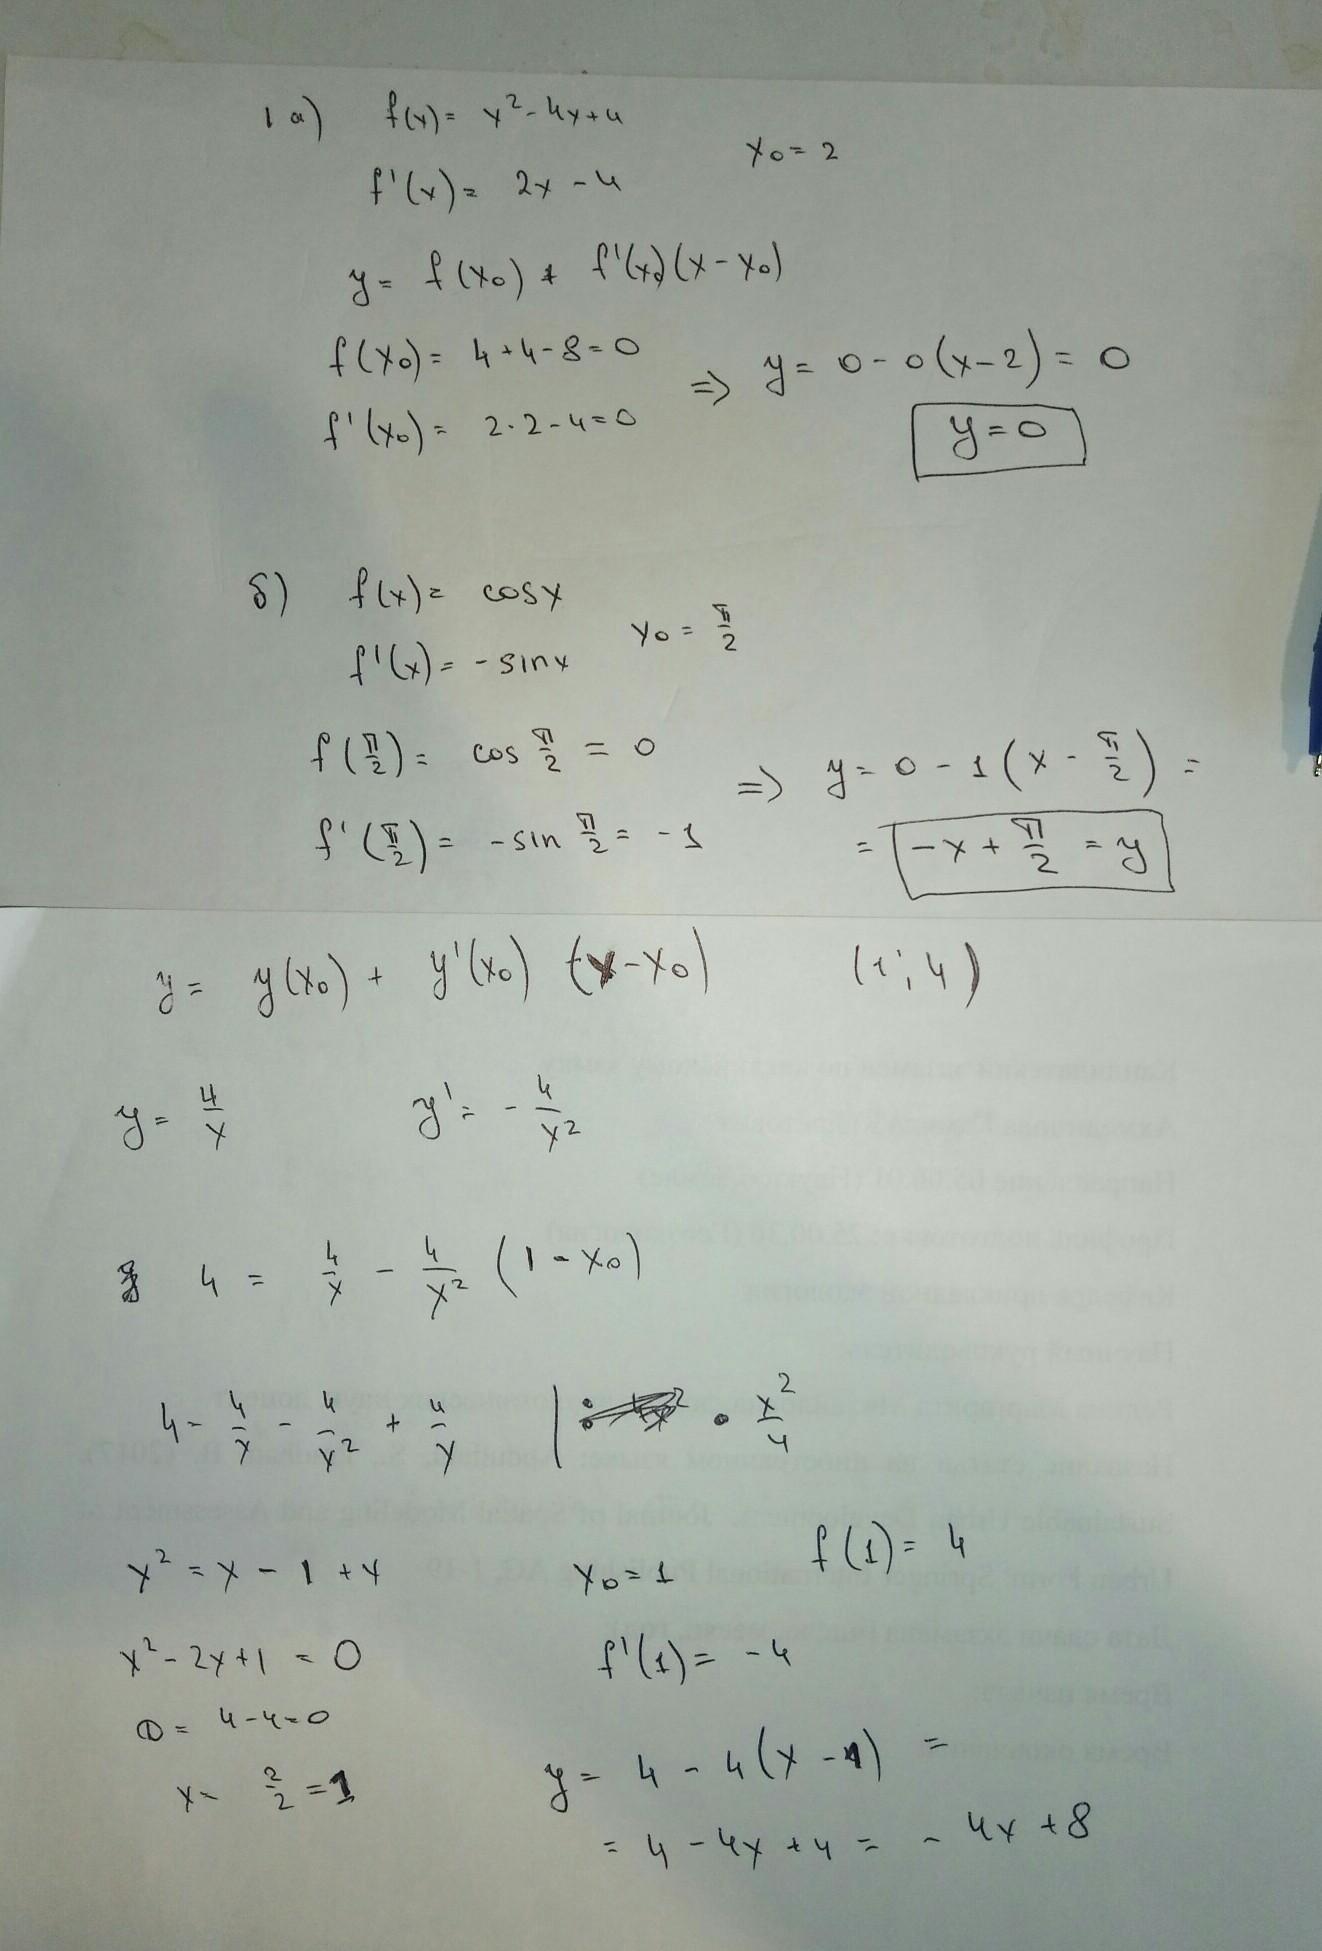 1 а) f(x) = x² - 4x + 4
x₀ = 2
f'(x) = 2x - 4
y = f(x₀) + f'(x₀)(x - x₀)
f(x₀) = 4 + 4 - 8 = 0
f'(x₀) = 2·2 - 4 = 0
=> y = 0 - 0(x - 2) = 0
y = 0
б) f(x) = cosx
x₀ = π/2
f'(x) = - sinx
f(π/2) = cos π/2 = 0
f'(π/2) = - sin π/2 = - 1
=> y = 0 - 1(x - π/2) =
= - x + π/2 = y
y = y(x₀) + y'(x₀) (x - x₀) (1; 4)
y = 4/x y' = - 4/x²
4 = 4/x - 4/x² (1 - x₀)
4 = 4/x - 4/x² + 4/x | · x²/4
x² = x - 1 + x
x² - 2x + 1 = 0
D = 4 - 4 = 0
x = 2/2 = 1
x₀ = 1 f(1) = 4
f'(1) = - 4
y = 4 - 4(x - 1) =
= 4 - 4x + 4 = - 4x + 8